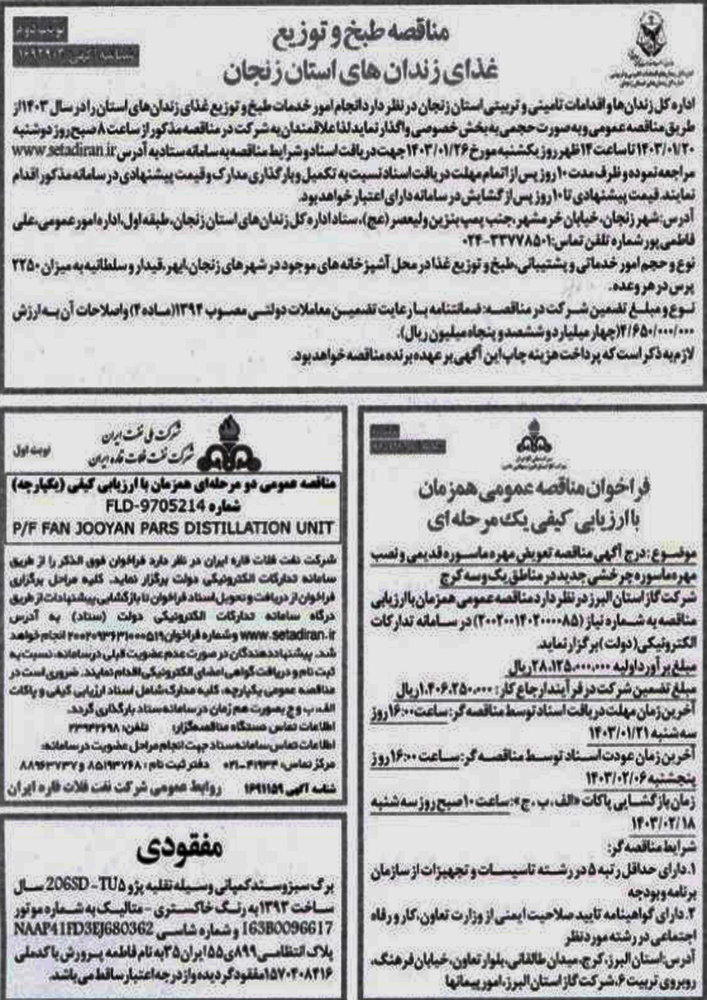 مناقصه طبخ و توزیع
غذای زندان های استان زنجان
نوبت دوم
اداره کل زندان ها و اقدامات تامینی و تربیتی استان زنجان در نظر دارد انجام امور خدمات طبخ و توزیع غذای زندان های استان را در سال ۱۴۰۳ از
طریق مناقصه عمومی و به صورت حجمی به بخش خصوصی واگذار نماید لذا علاقمندان به شرکت در مناقصه مذکور از ساعت ۸ صبح روز دوشنبه
۱۴۰۳/۰۱/۲۰ تا ساعت ۱۴ ظهر روز یکشنبه مورخ ۱۴۰۳/۰۱/۲۶ جهت دریافت اسناد و شرایط مناقصه به سامانه ستاد به آدرس www.setadiran.ir
مراجعه نموده و ظرف مدت ۱۰ روز پس از اتمام مهلت دریافت اسناد نسبت به تکمیل و بارگذاری مدارک و قیمت پیشنهادی در سامانه مذکور اقدام
نمایند. قیمت پیشنهادی تا ۱۰ روز پس از گشایش در سامانه دارای اعتبار خواهد بود.
آدرس: شهر زنجان، خیابان خرمشهر، جنب پمپ بنزین ولیعصر (عج)، ستاد اداره کل زندان های استان زنجان، طبقه اول، اداره امور عمومی، علی
فاطمی پور شماره تلفن تماس: ۳۳۷۷۸۵۰۱-۰۲۴
نوع و حجم امور خدماتی و پشتیبانی، طبخ و توزیع غذا در محل آشپزخانه های موجود در شهر های زنجان، ابهر، قیدار و سلطانیه به میزان ۲۲۵۰
پرس در هر وعده.
نوع و مبلغ تضمین شرکت در مناقصه: ضمانتنامه با رعایت تضمین معاملات دولتی مصوب ۱۳۹۴ (ماده ۴) و اصلاحات آن به ارزش
۴/۶۵۰/۰۰۰/۰۰۰ (چهار میلیارد و ششصد و پنجاه میلیون ریال).
لازم به ذکر است که پرداخت هزینه چاپ این آگهی بر عهده برنده مناقصه خواهد بود.
فراخوان مناقصه عمومی همزمان
با ارزیابی کیفی یک مرحله ای
موضوع: درج آگهی مناقصه تعویض مهره ماسوره قدیمی و نصب
مهره ماسوره چرخشی جدید در مناطق یک و سه کرج
شرکت گاز استان البرز در نظر دارد مناقصه عمومی همزمان با ارزیابی
مناقصه به شماره نیاز (۲۰۰۲۰۰۱۴۰۲۰۰۰۰۸۵) در سامانه تدارکات
الکترونیکی (دولت) برگزار نماید.
مبلغ برآورد اولیه ۲۸،۱۲۵،۰۰۰،۰۰۰ ریال
مبلغ تضمین شرکت در فرآیند ارجاع کار: ۱،۴۰۶،۲۵۰،۰۰۰ ریال
آخرین زمان مهلت دریافت اسناد توسط مناقصه گر: ساعت ۱۶:۰۰ روز
سه شنبه ۱۴۰۳/۰۱/۲۱
آخرین زمان عودت اسناد توسط مناقصه گر: ساعت ۱۶:۰۰ روز
پنجشنبه ۱۴۰۳/۰۲/۰۶
زمان بازگشایی پاکات «الف، ب، ج»: ساعت ۱۰ صبح روز سه شنبه
۱۴۰۳/۰۲/۱۸
شرایط مناقصه گر:
۱. دارای حداقل رتبه ۵ در رشته تاسیسات و تجهیزات از سازمان
برنامه و بودجه
۲. دارای گواهینامه تایید صلاحیت ایمنی از وزارت تعاون، کار و رفاه
اجتماعی در رشته مورد نظر
آدرس: استان البرز، کرج، میدان طالقانی، بلوار تعاون، خیابان فرهنگ،
روبروی تربیت ۶، شرکت گاز استان البرز، امور پیمانها
شرکت ملی نفت ایران
شرکت نفت فلات قاره ایران
نوبت اول
مناقصه عمومی دو مرحله‌ای همزمان با ارزیابی کیفی (یکپارچه)
شماره FLD-9705214
P/F FAN JOOYAN PARS DISTILLATION UNIT
شرکت نفت فلات قاره ایران در نظر دارد فراخوان فوق الذکر را از طریق
سامانه تدارکات الکترونیکی دولت برگزار نماید. کلیه مراحل برگزاری
فراخوان از دریافت و تحویل اسناد فراخوان تا بازگشایی پیشنهادات از طریق
درگاه سامانه تدارکات الکترونیکی دولت (ستاد) به آدرس
www.setadiran.ir و شماره فراخوان ۲۰۰۲۰۹۳۶۳۱۰۰۰۵۱۹ انجام خواهد
شد. پیشنهاددهندگان در صورت عدم عضویت قبلی در سامانه، نسبت به
ثبت نام و دریافت گواهی امضای الکترونیکی اقدام نمایند. ضروری است در
مناقصه عمومی یکپارچه، کلیه مدارک شامل اسناد ارزیابی کیفی و پاکات
الف، ب و ج بصورت هم زمان در سامانه ستاد بارگذاری گردد.
اطلاعات تماس دستگاه مناقصه‌گزار: تلفن: ۲۳۹۴۲۶۹۸
اطلاعات تماس سامانه ستاد جهت انجام مراحل عضویت در سامانه:
مرکز تماس: ۴۱۹۳۴-۰۲۱ دفتر ثبت نام: ۸۵۱۹۳۷۶۸ و ۸۸۹۶۳۷۳۷
شناسه آگهی ۱۶۹۱۱۵۹ روابط عمومی شرکت نفت فلات قاره ایران
مفقودی
برگ سبز و سند کمپانی وسیله نقلیه پژو 206SD-TU۵ سال
ساخت ۱۳۹۳ به رنگ خاکستری - متالیک به شماره موتور
163B0096617 و شماره شاسی NAAP41FD3EJ680362
پلاک انتظامی ۸۹۹ی۵۵ ایران ۳۵ به نام فاطمه پرورش با کدملی
۱۵۷۰۴۰۸۴۱۶ مفقود گردیده و از درجه اعتبار ساقط می باشد.